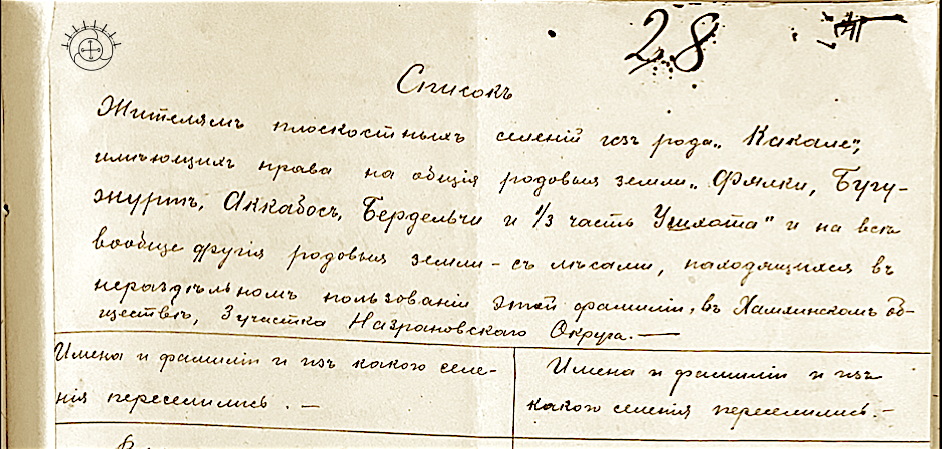 28
Списокъ
Жителямъ плоскостныхъ селеній изъ рода „Какале",
имѣющихъ права на общія родовыя земли „Фялки, Бугу-
журтъ, Аккабосъ, Бердельчи и 1/3 часть Ушхота" и на всѣ
вообще другія родовыя земли – съ лѣсами, находящихся въ
нераздѣльномъ пользованіи этой фамиліи, въ Хамхинскомъ об-
ществѣ, 3 участка Назрановскаго Округа. —
Имена и фамиліи и изъ какого селе-
нія переселились. —
Имена и фамиліи и изъ
какого селенія переселились. —